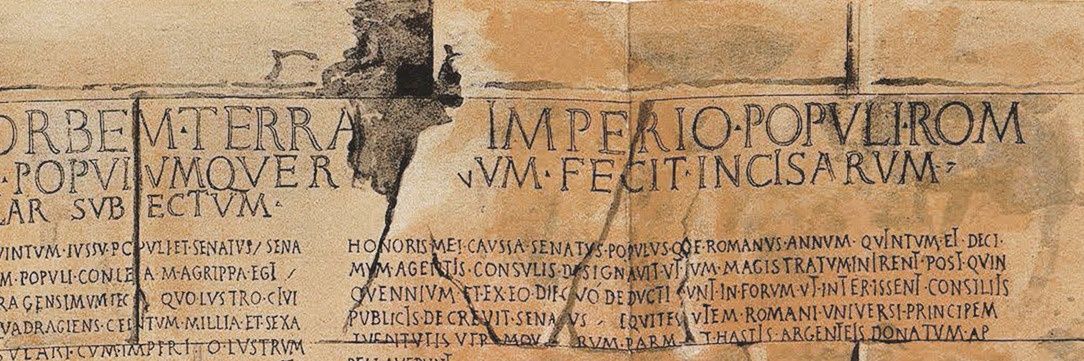 ORBEM·TERRA IMPERIO·POPVLI·ROM
·POPVL VMQVE R VM·FECIT·INCISARVM·
LAR SVB ECTVM·
VINTVM·IVSSV·P PVLI·ET·SENATVS SENA
M·POPVLI·CON LE A·M·AGRIPPA·EGI
RAGENSIMVM FEC QVO LVSTRO·CIVI
VADRAGIENS·CE NTVM·MILLIA·ET·SEXA
CVM·IMPERI O·LVSTRVM
HONORIS·MEI·CAVSSA·SENATVS·POPVLVSQ E·ROMANVS·ANNVM·QVINTVM·ET·DECI·
MVM·AGENTIS·CONSVLIS·DESIGNAVIT·VT VM·MAGISTRATVM·INIRENT·POST·QVIN
QVENNIVM·ET·EX·EO·DIE·QVO·DEDVCTI VNT·IN·FORVM·VT·INTERESSENT·CONSILIIS
PVBLICIS·DECREVIT·SENA VS EQVITES VTEM·ROMANI·VNIVERSI·PRINCIPEM
IVENTVTIS·VTR RVM·PARM T·HASTIS·ARGENTEIS·DONATVM·AP